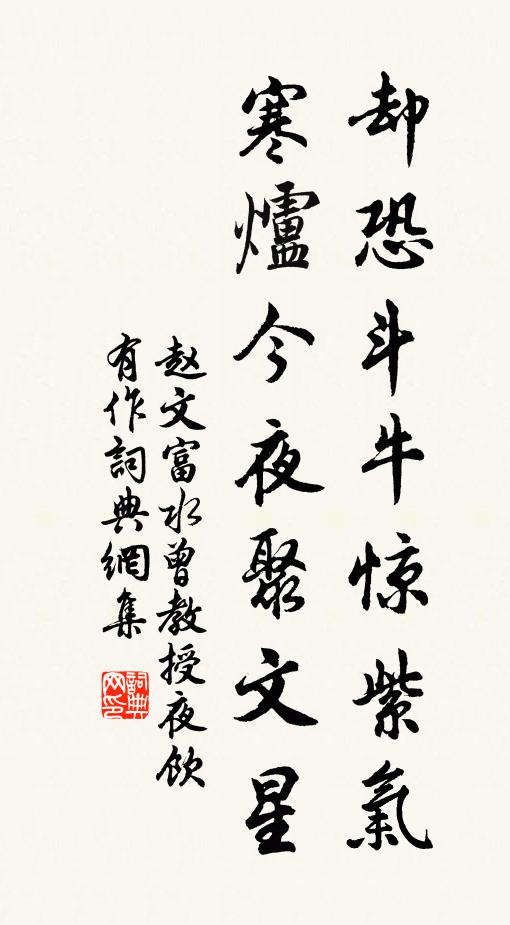 却恐斗牛惊紫氣
寒爐今夜聚文星
赵文富水曾教授夜飲
有作詞典網集
詞典
网印